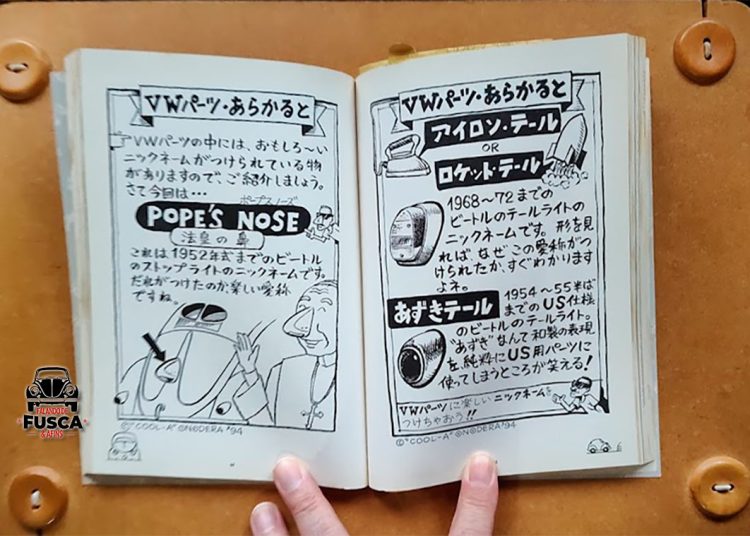 VWパーツ・あらかると
VWパーツの中には、おもしろ〜い
ニックネームがつけられている物
がありますので、ご紹介しましょう。
さて今回は・・・
ポープスノーズ
POPE'S NOSE
法皇の鼻
これは1952年式までのビートル
のストップライトのニックネームです。
だれがつけたのか楽しい愛称
ですね。
©"COOL-A" ONODERA '94
VWパーツ・あらかると
アイロン・テール
OR
ロケット・テール
1968〜72までの
ビートルのテールライトの
ニックネームです。形を見
れば、なぜこの愛称がつ
けられたか、すぐわかります
よネ。
あずきテール
1954〜55半ば
までのUS仕様
のビートルのテールライト。
"あずき"なんて和製の表現
を、純粋にUS用パーツに
使ってしまうところが笑える!
VWパーツに楽しいニックネームを
つけちゃおう!!
©"COOL-A" ONODERA '94
FUSCA
& AFINS